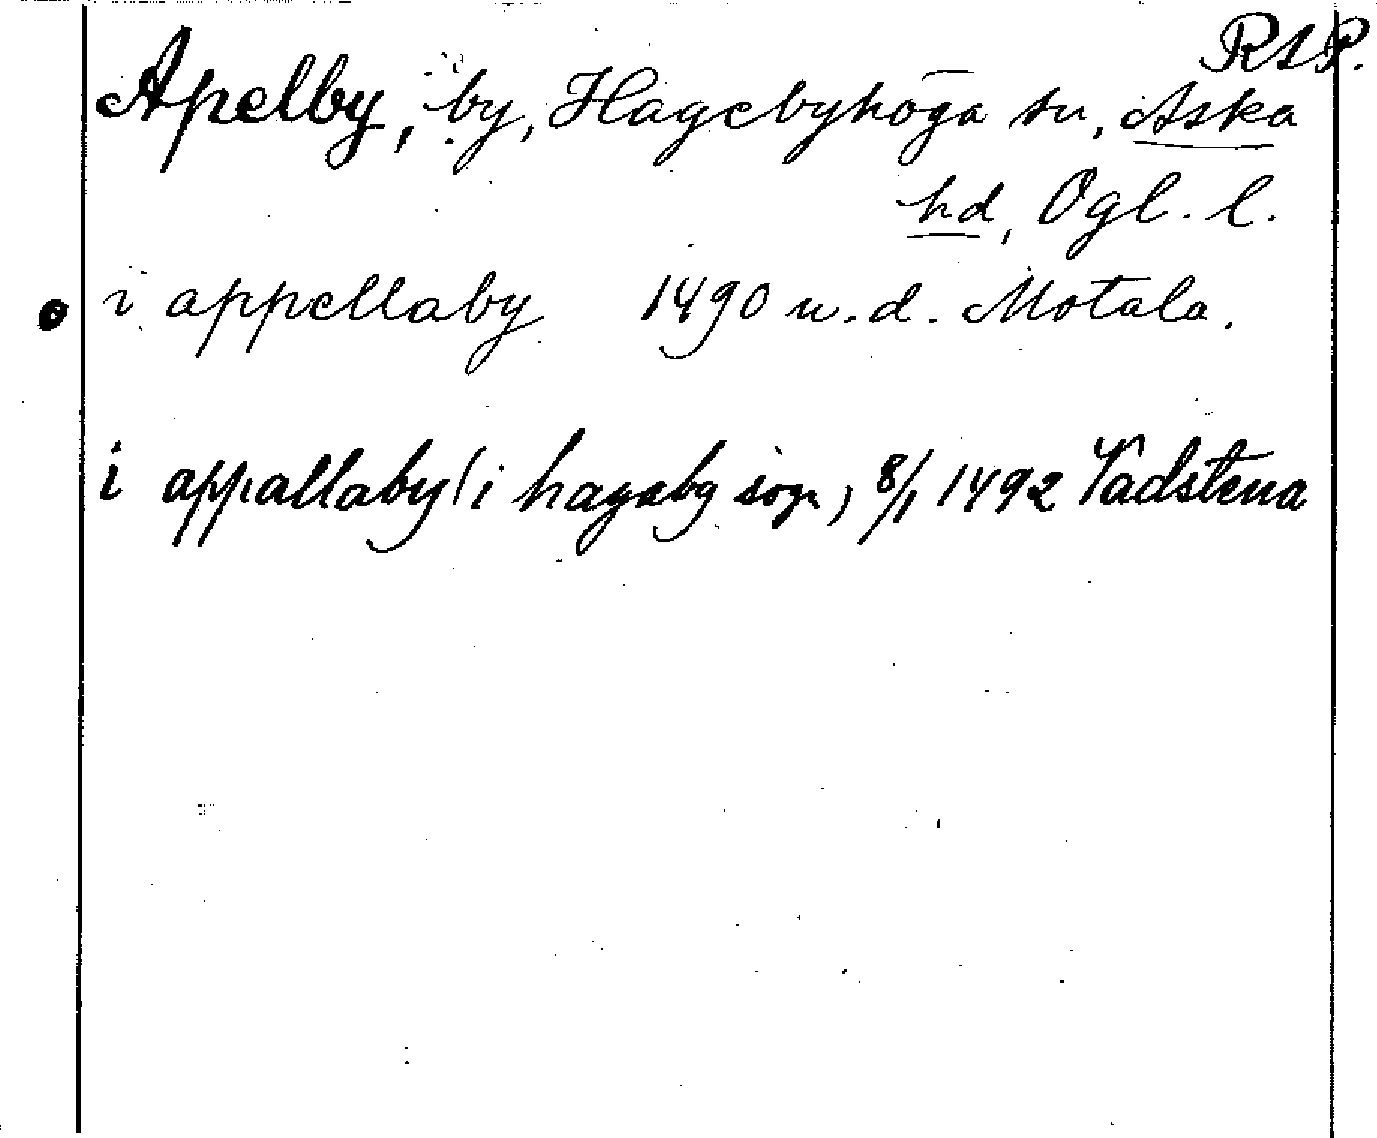 RAP.
Apelby, by, Hagebyhöga sn, Aska
hd, Ögl. l.
i appellaby 1490 u.d. Motala.
i appallaby (i hagaby sogn) 8/1 1492 Vadstena